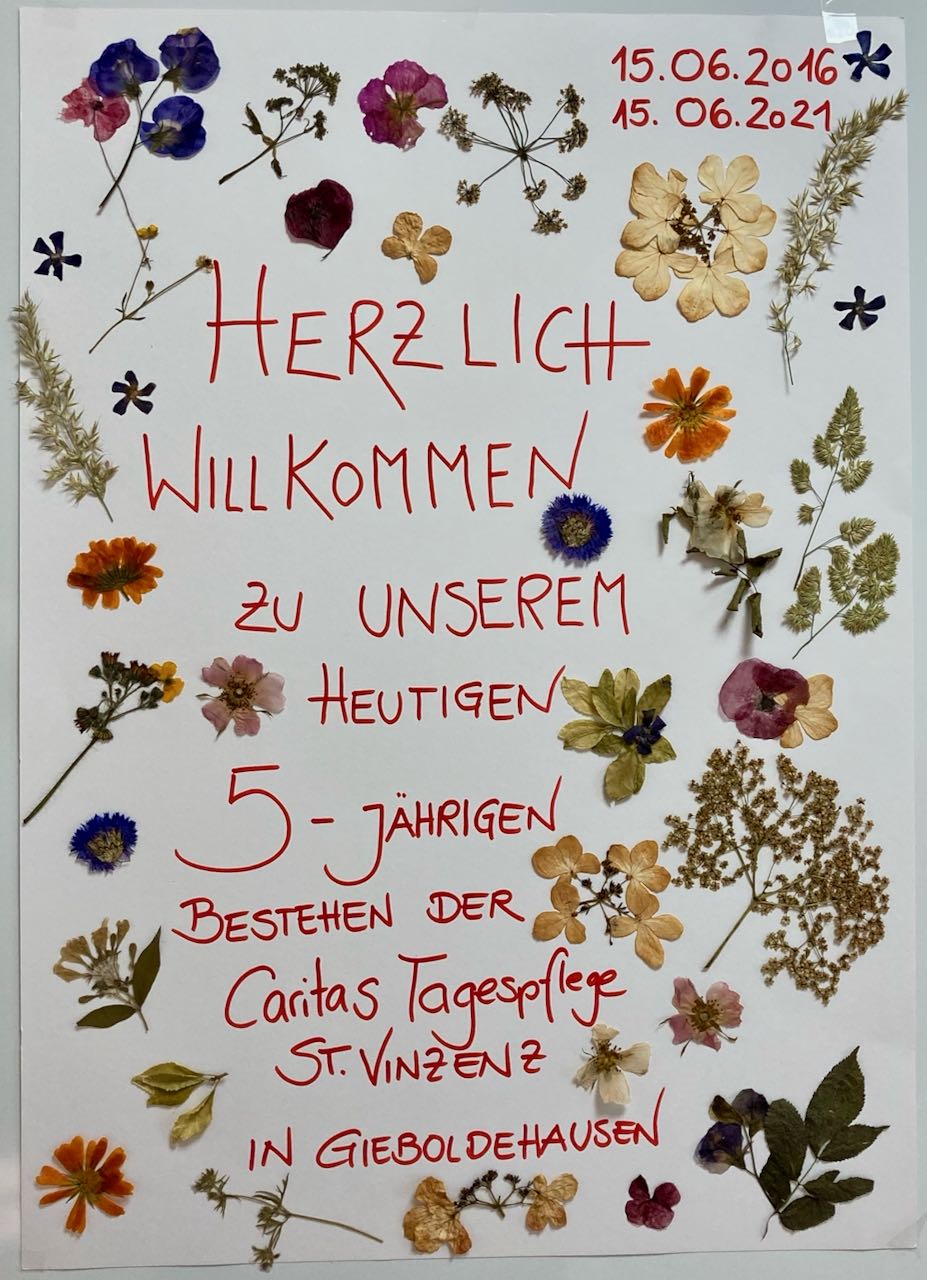 15.06.2016
15.06.2021
HERZLICH
WILLKOMMEN
ZU UNSEREM
HEUTIGEN
5-JÄHRIGEN
BESTEHEN DER
Caritas Tagespflege
ST. VINZENZ
IN GIEBOLDEHAUSEN